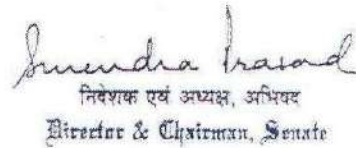 Surendra Prasad
निदेशक एवं अध्यक्ष, अभिषद
Director & Chairman, Senate